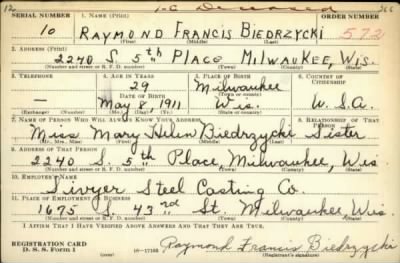 12 1-C Deceased 366
SERIAL NUMBER 1. NAME (Print) ORDER NUMBER
10 RAYMOND FRANCIS BIEDRZYCKI 572
(First) (Middle) (Last)
2. ADDRESS (Print)
2240 S. 5th PLACE MILWAUKEE, WIS.
(Number and street or R. F. D. number) (Town) (County) (State)
3. TELEPHONE 4. AGE IN YEARS 5. PLACE OF BIRTH 6. COUNTRY OF CITIZENSHIP
29 Milwaukee
DATE OF BIRTH (Town or county)
— May 8, 1911 Wis. U.S.A.
(Exchange) (Number) (Mo.) (Day) (Yr.) (State or country)
7. NAME OF PERSON WHO WILL ALWAYS KNOW YOUR ADDRESS 8. RELATIONSHIP OF THAT PERSON
Miss Mary Helen Biedrzycki Sister
(Mr., Mrs., Miss) (First) (Middle) (Last)
9. ADDRESS OF THAT PERSON
2240 S. 5th Place, Milwaukee, Wis.
(Number and street or R. F. D. number) (Town) (County) (State)
10. EMPLOYER'S NAME
Sivyer Steel Casting Co.
11. PLACE OF EMPLOYMENT OR BUSINESS
1675 S. 43rd St. Milwaukee Wis.
(Number and street or R. F. D. number) (Town) (County) (State)
I AFFIRM THAT I HAVE VERIFIED ABOVE ANSWERS AND THAT THEY ARE TRUE.
REGISTRATION CARD
D. S. S. FORM 1 16-17105 Raymond Francis Biedrzycki
(Registrant's signature)